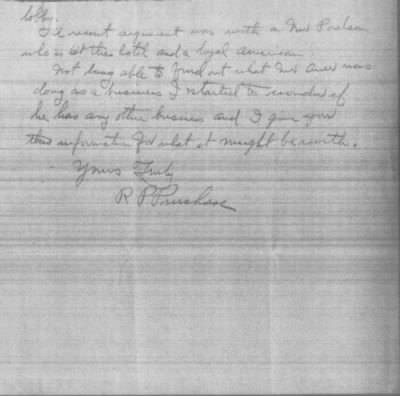 lobby.
A recent argument was with a Mr Poulson
who is at this hotel and a loyal american
Not being able to find out what Mr was
doing as a business I started to wonder if
he has any other business and I give you
this information for what it might be worth.
Yours Truly
R P Purchase